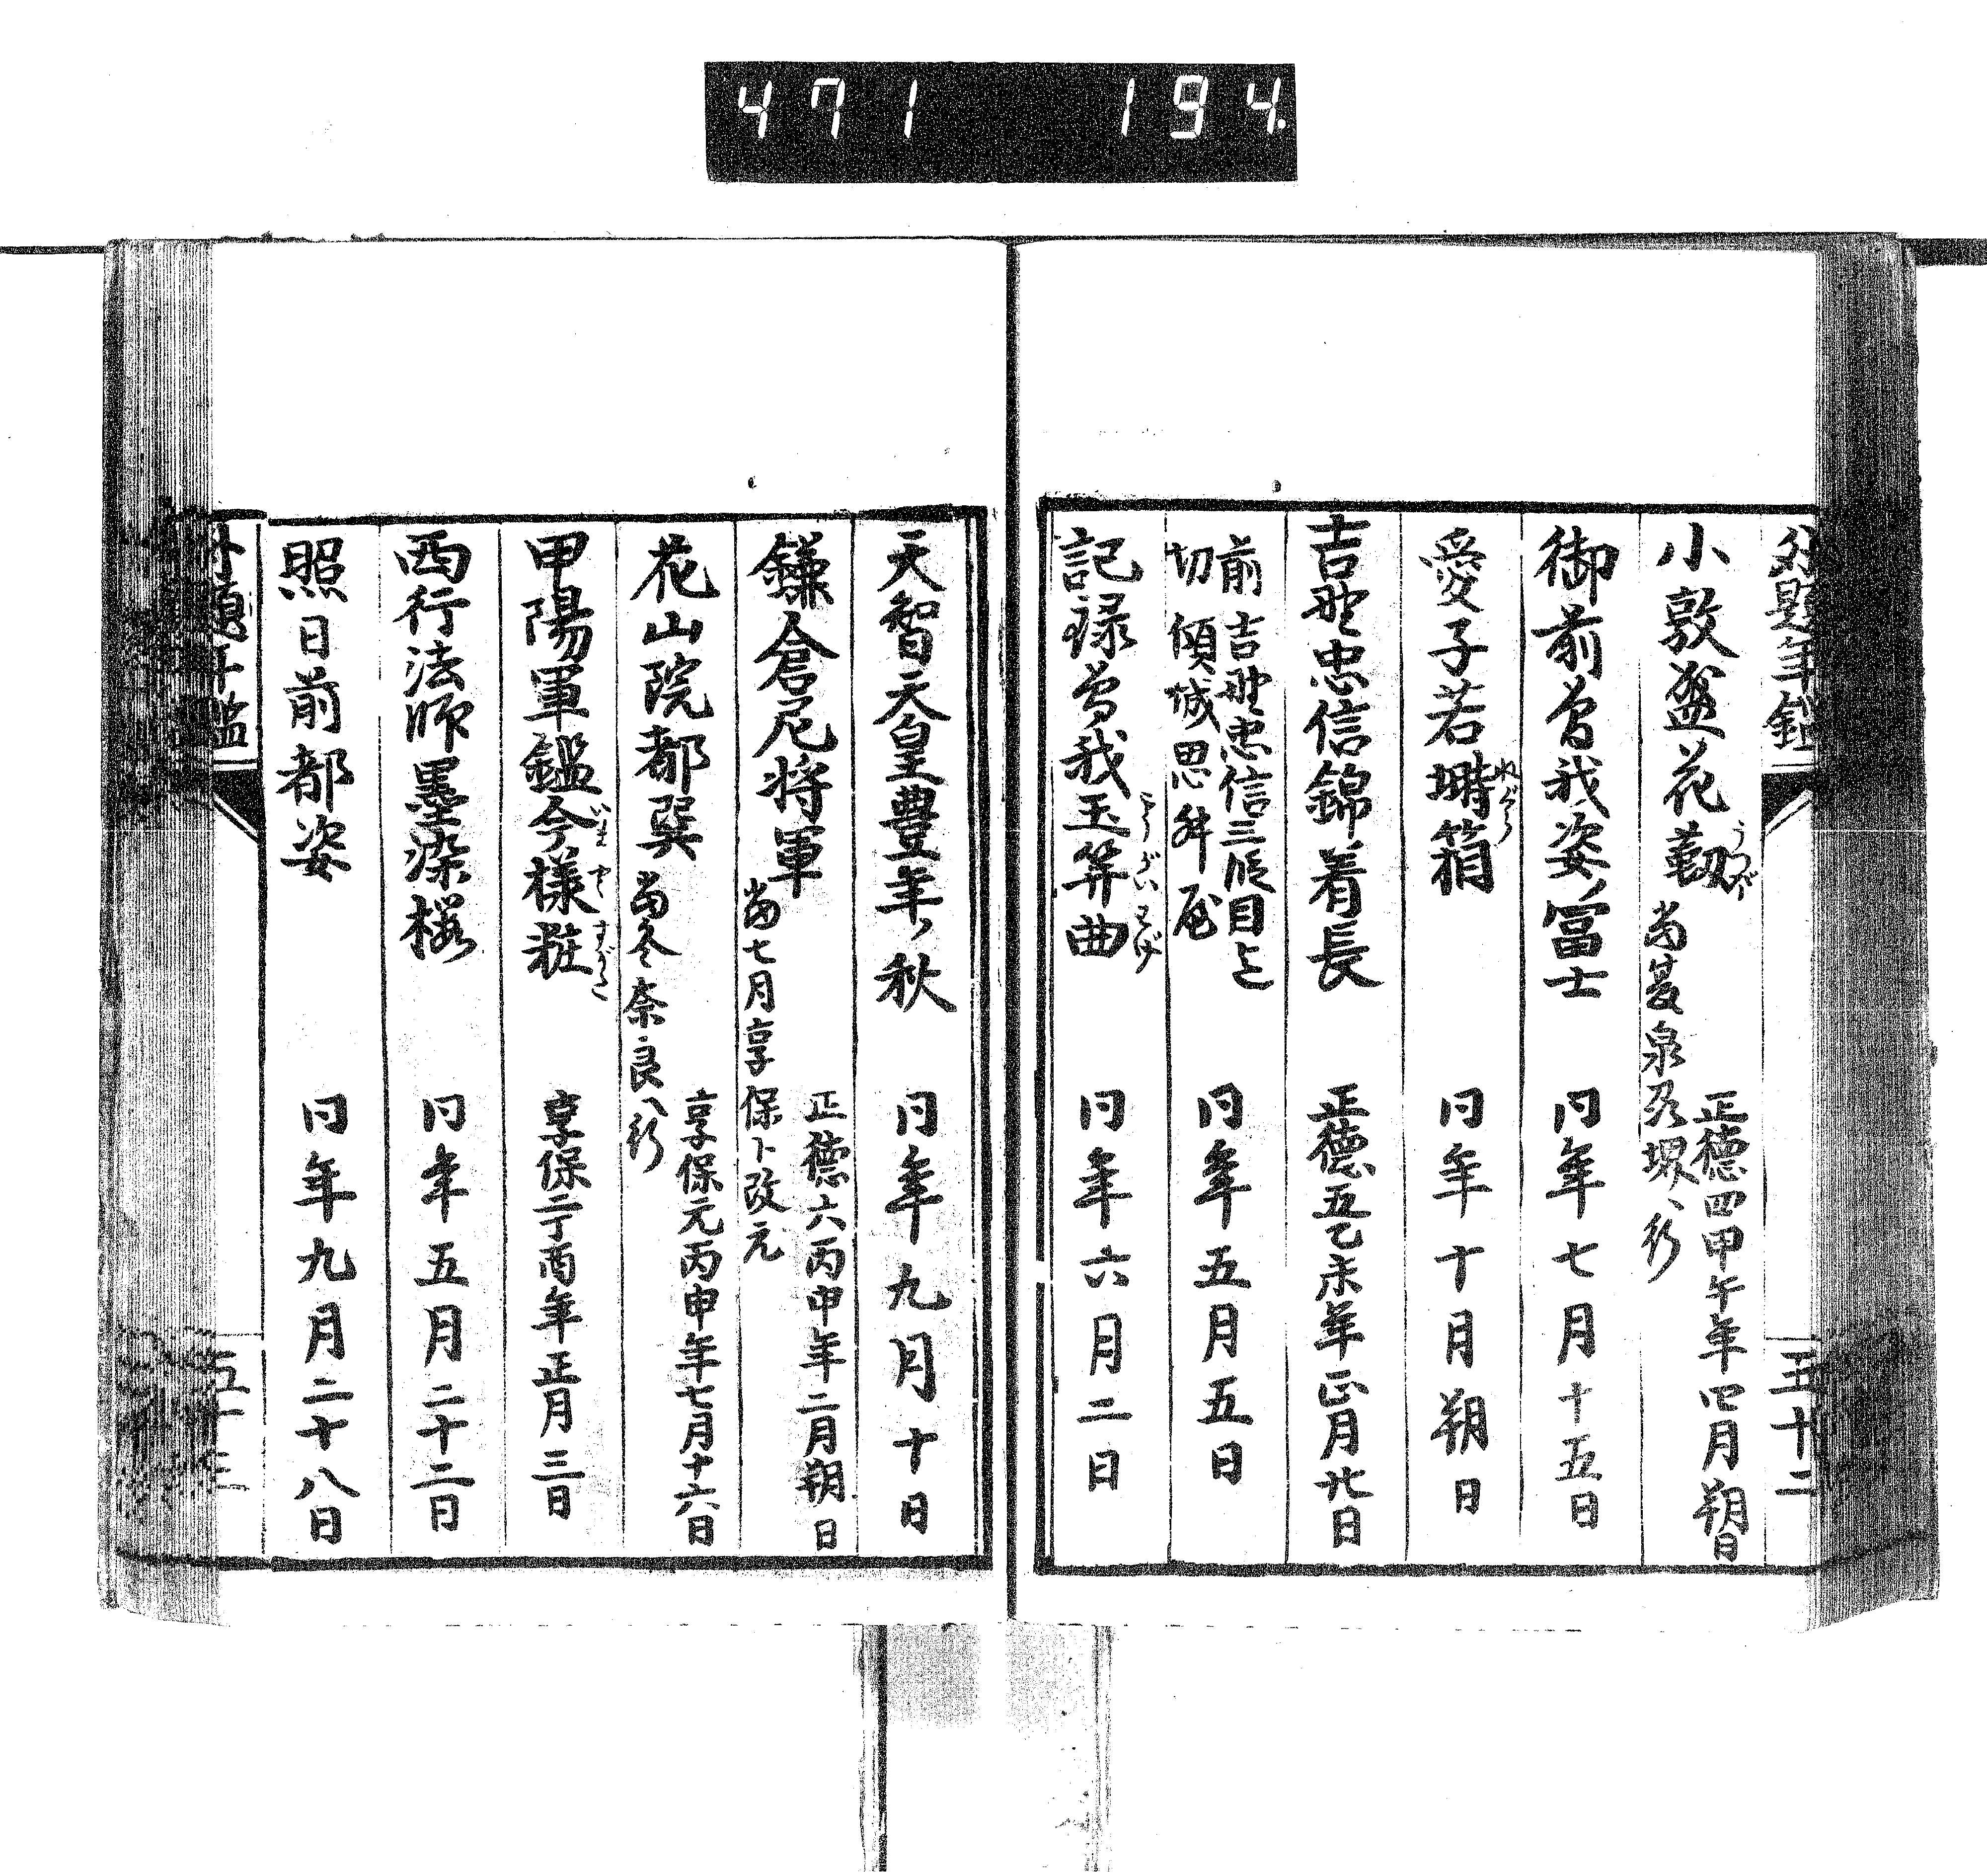 471 194.
外題年鑑
五十二
小敦盛花靱 うつぼ 正徳四甲午年四月朔日
当夏泉及堺へ行
御前曽我姿ノ冨士 同年七月十五日
愛子若塒箱 ねぐら 同年十月朔日
吉野忠信錦ノ着長 正徳五乙未年正月廿日
前 吉野忠信三段目迄
切 傾城思舛屋 同年五月五日
記録曽我玉笄曲 こうがいわげ 同年六月二日
天智天皇豊年ノ秋 同年九月十日
鎌倉尼将軍 正徳六丙申年二月朔日
当七月享保ト改元
花山院都巽 享保元丙申年七月十六日
当冬奈良へ行
甲陽軍鑑今様粧 いまやうすがた 享保二丁酉年正月三日
西行法師墨染桜 同年五月二十二日
照日前都姿 同年九月二十八日
外題年鑑
五十三